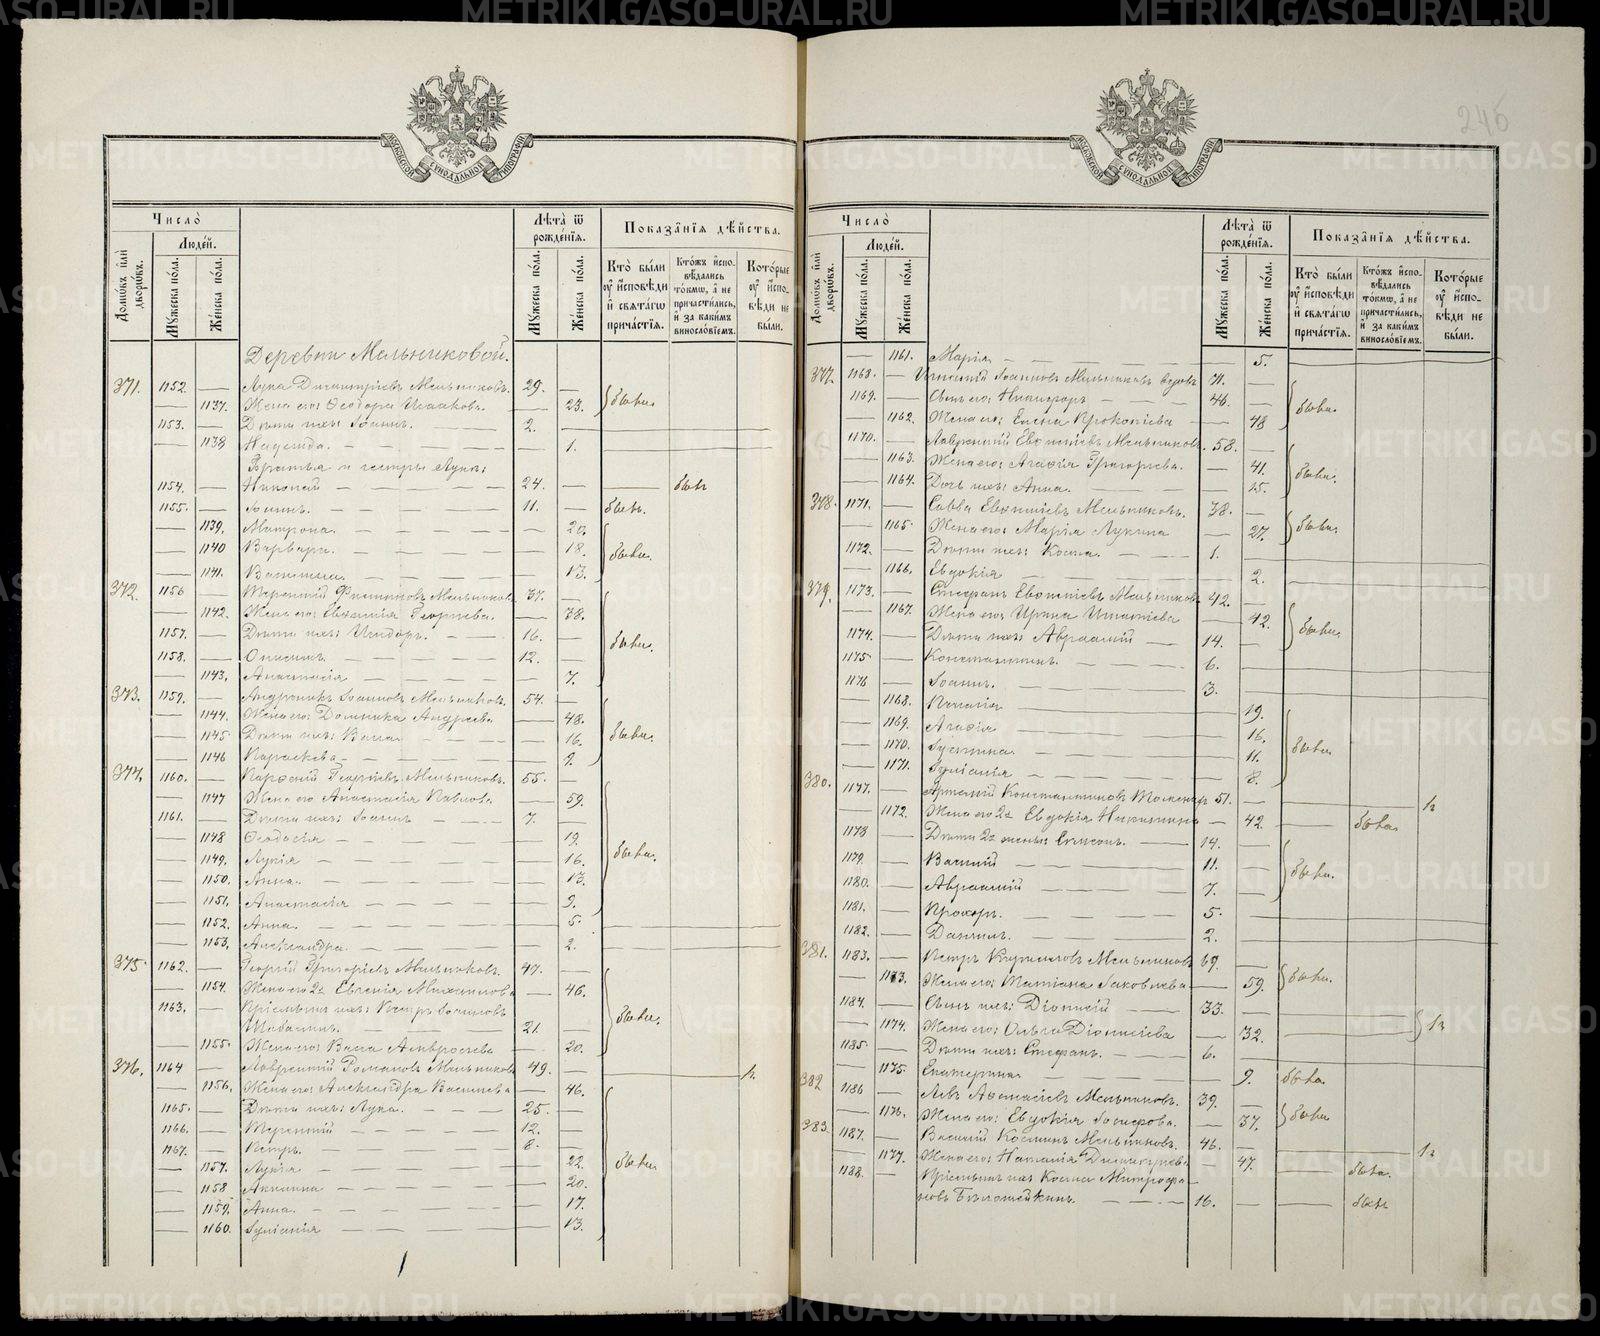 246
МОСКОВСКОЙ СѴНОДАЛЬНОЙ ТИПОГРАФІИ
Число̀
Домѡ́въ и҆лѝ дворѡ́въ.
Люде́й.
Мꙋ́жеска по́ла.
Же́нска по́ла.
Лѣ́та ѿ рожде́нїѧ.
Мꙋ́жеска по́ла.
Же́нска по́ла.
Показа̑нїѧ дѣ́йства.
Кто̀ бы́ли ᲂу҆ и҆сповѣ́ди и҆ свѧта́гѡ прича́стїѧ.
Кто́жъ и҆споведались то́кмѡ, а҆ не причасти́лись, и҆ за каки́мъ винословїемъ.
Кото́рые ᲂу҆ и҆сповѣ́ди не бы́ли.
Деревни Мельниковой.
371. 1152. — Лука Димитріевъ Мельниковъ. 29. —
— 1137. Жена его: Ѳеодора Исаакова. — 23. } были.
1153. — Дѣти ихъ: Іоаннъ. 2. —
— 1138 Надежда. — 1.
Братья и сестры Луки:
1154. — Николай 24. — былъ
1155. — Іоаннъ. 11. — былъ.
— 1139. Матрона. — 20.
— 1140 Варвара. — 18. } были.
— 1141. Василиса. — 13.
372. 1156 — Терентій Филиповъ Мельниковъ 37. —
— 1142. Жена его: Евгенія Георгіева. — 38.
1157. — Дѣти ихъ: Исидоръ. 16. — } были.
1158. — Онисимъ. 12. —
— 1143. Анастасія — 7.
373. 1159. — Андроникъ Іоанновъ Мельниковъ. 54. —
— 1144. Жена его: Домника Андреева — 48.
— 1145 Дѣти ихъ: Васса — 16. } были.
— 1146 Параскева — 9.
374. 1160. — Георгіевъ Мельниковъ. 55. —
— 1147 Жена его Анастасія Павлова — 59.
1161. — Дѣти ихъ: Іоаннъ 7. —
— 1148 Ѳеодосія — 19.
— 1149. Лукія — 16. } были.
— 1150. Анна. — 13.
— 1151. Анастасія — 9.
— 1152. Анна — 5.
— 1153. Александра. — 2.
375. 1162. — Георгій Григоріевъ Мельниковъ. 47. —
— 1154. Жена его 2я Евгенія Михаилова — 46.
1163. — Пріемышъ ихъ: Петръ Іоанновъ } были.
Шабалинъ. 21. —
— 1155. Жена его: Васса Амвросіева — 20.
376. 1164 — Лаврентій Романовъ Мельниковъ 49. — н.
— 1156. Жена его: Александра Василіева — 46.
1165. — Дѣти ихъ: Лука. 25. —
1166. — Терентій 12. —
1167. — Петръ. 8. —
— 1157. Лукія — 22. } были.
— 1158 Акилина — 20.
— 1159. Анна. — 17.
— 1160. Іуліанія — 13.
— 1161. Марія — 5.
377. 1168. — Игнатій Іоанновъ Мельниковъ вдовъ 71. —
1169. — Сынъ его: Никифоръ 46. — } были.
— 1162. Жена его: Елена Прокопіева — 48
1170. — Лаврентій Евѳиміевъ Мельниковъ. 58. —
— 1163. Жена его: Агаѳія Григоріева. — 41. } были.
— 1164. Дочь ихъ: Анна. — 15.
378. 1171. — Савва Евѳиміевъ Мельниковъ. 38. —
— 1165. Жена его: Марія Лукина — 27. } были.
1172. — Дѣти ихъ: Косма. 1. —
— 1166. Евдокія — 2.
379. 1173. — Стефанъ Евѳиміевъ Мельниковъ 42. —
— 1167. Жена его: Ирина Игнатіева — 42. } были.
1174. — Дѣти ихъ: Авраамій 14. —
1175 — Константинъ. 6. —
1176 — Іоаннъ. 3. —
— 1168. Пелагія — 19.
— 1169. Агаѳія — 16.
— 1170. Іустина — 11. } были
— 1171. Іуліанія — 8.
380. 1177. — Артемій Константиновъ 51. — н
— 1172. Жена его 2я Евдокія — 42. была.
1178 — Дѣти 2й жены: 14. —
1179. — Василій 11. — } были.
1180. — Авраамій 7. —
1181. — Прохоръ. 5. —
1182. — Даніилъ. 2. —
381. 1183. — Петръ Мельниковъ 69. —
— 1173. Жена его: Татіана Іаковлева — 59. } были.
1184. — Сынъ ихъ: Діонисій 33. —
— 1174. Жена его: Ольга Діонисіева — 32. } н
1185. — Дѣти ихъ: Стефанъ. 6. —
— 1175. Екатерина — 9. была.
382 1186 — Левъ Аѳанасіевъ Мельниковъ. 39. —
— 1176. Жена его: Евдокія Іосифова. — 37. } были
383. 1187. — Василій Косминъ Мельниковъ. 46. — н
— 1177. Жена его: Наталія Димитріева — 47. была.
1188. — Пріемышъ ихъ Косма Митрофа-
новъ 16. — былъ
METRIKI.GASO-URAL.RU